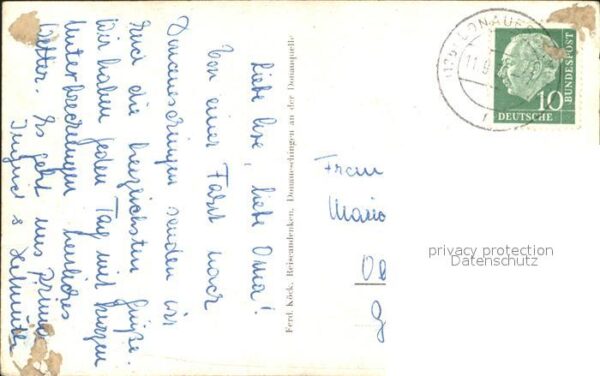 Liebe Lise, liebe Oma!
Von einer Fahrt nach
Donaueschingen senden wir
Euch die herzlichsten Grüße.
Wir haben jeden Tag mit kurzen
Unterbrechungen herrliches
Wetter. Es geht uns prima
Ingrid & Helmuth
Ferd. Köck, Reiseandenken, Donaueschingen an der Donauquelle
DONAUES
11.9
10
DEUTSCHE
BUNDESPOST
Frau
Maria
privacy protection
Datenschutz